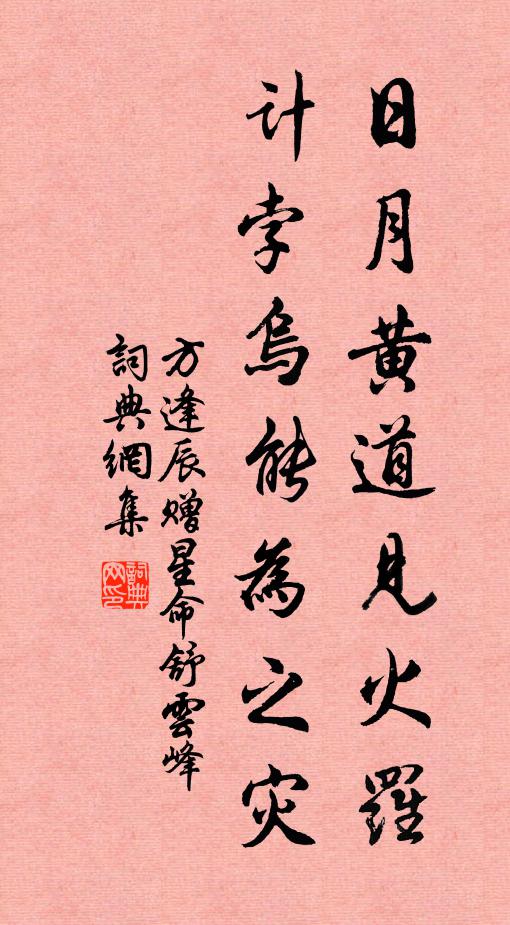 日月黄道見火羅
计孛烏能為之灾
方逢辰赠星命舒雲峰
詞典網集
詞典网印